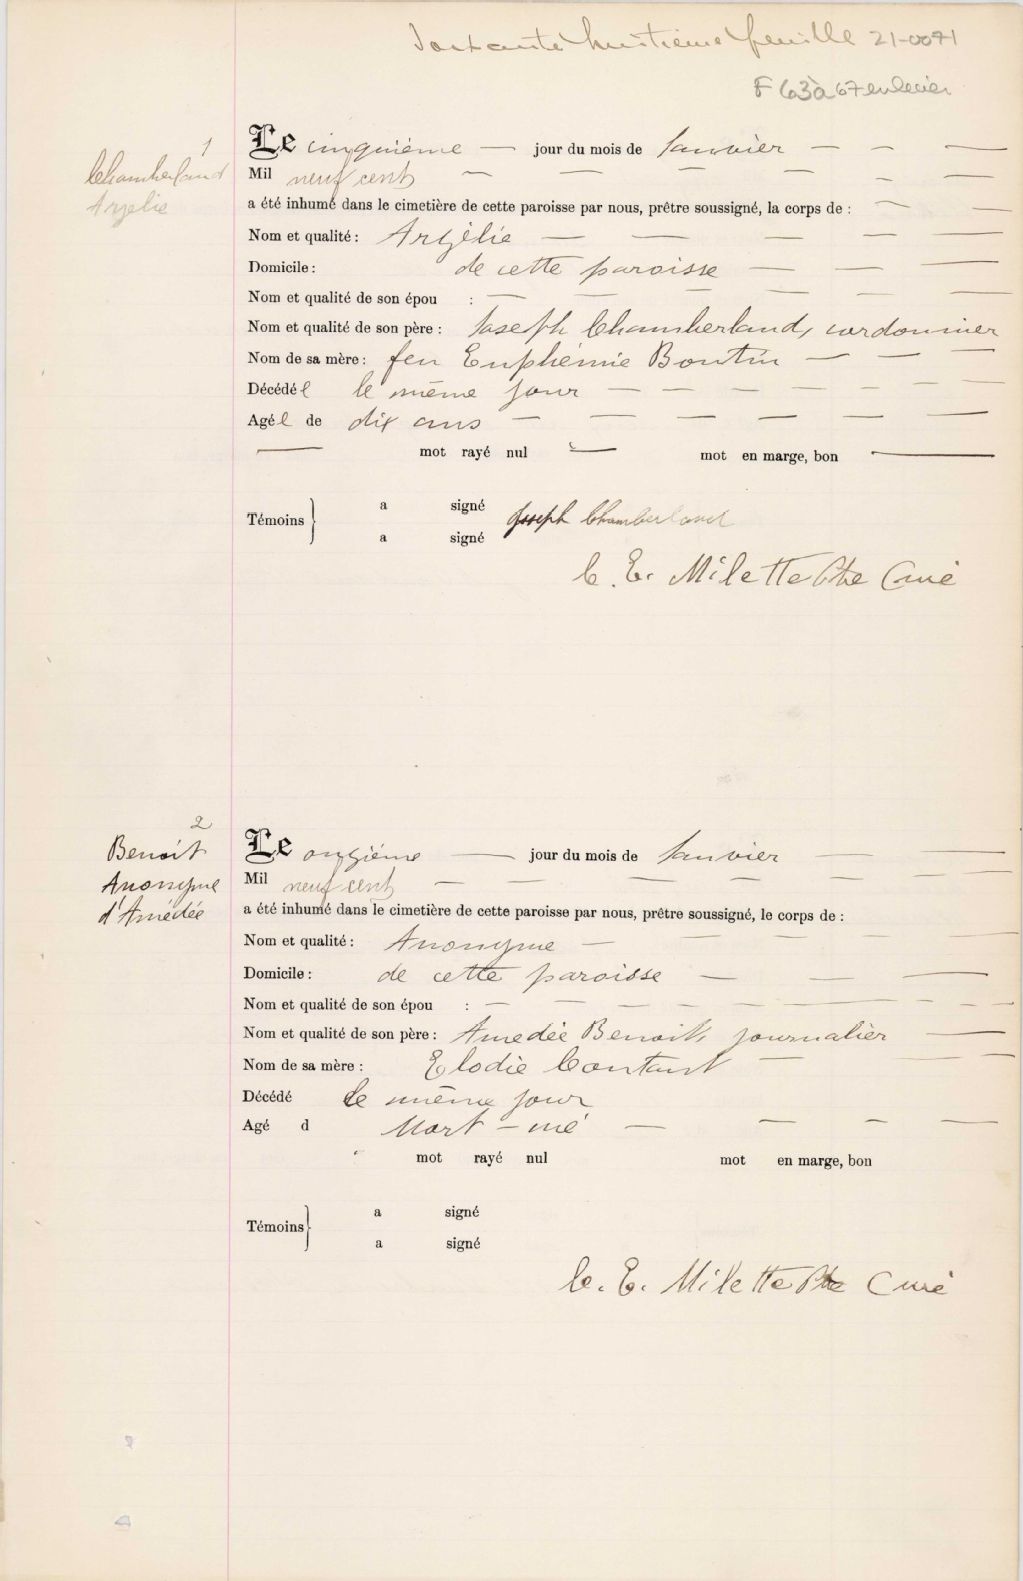 Soixante huitième feuille 21-0071
F 63 à 67 enlevées
1
Chamberland
Arzélie
Le cinquième — jour du mois de Janvier — — —
Mil neuf cent — — — — —
a été inhumé dans le cimetière de cette paroisse par nous, prêtre soussigné, la corps de : — — —
Nom et qualité : Arzélie — — — — —
Domicile : de cette paroisse — — —
Nom et qualité de son épou : — — — — —
Nom et qualité de son père : Joseph Chamberland, cordonnier
Nom de sa mère : feu Euphémie Boutin — — —
Décédée le même jour — — — — — —
Agée de dix ans — — — — — —
— mot rayé nul — mot en marge, bon —
Témoins } a signé Joseph Chamberland
a signé
C. E. Milette Ptre Curé
2
Benoit
Anonyme
d'Amédée
Le onzième — jour du mois de Janvier — —
Mil neuf cent — — — — — —
a été inhumé dans le cimetière de cette paroisse par nous, prêtre soussigné, le corps de :
Nom et qualité : Anonyme — — — — —
Domicile : de cette paroisse — — —
Nom et qualité de son épou : — — — — — — — —
Nom et qualité de son père : Amédée Benoit, journalier —
Nom de sa mère : Elodie Contant — — —
Décédé le même jour
Agé d Mort-né — — — —
mot rayé nul mot en marge, bon
Témoins } a signé
a signé
C. E. Milette Ptre Curé